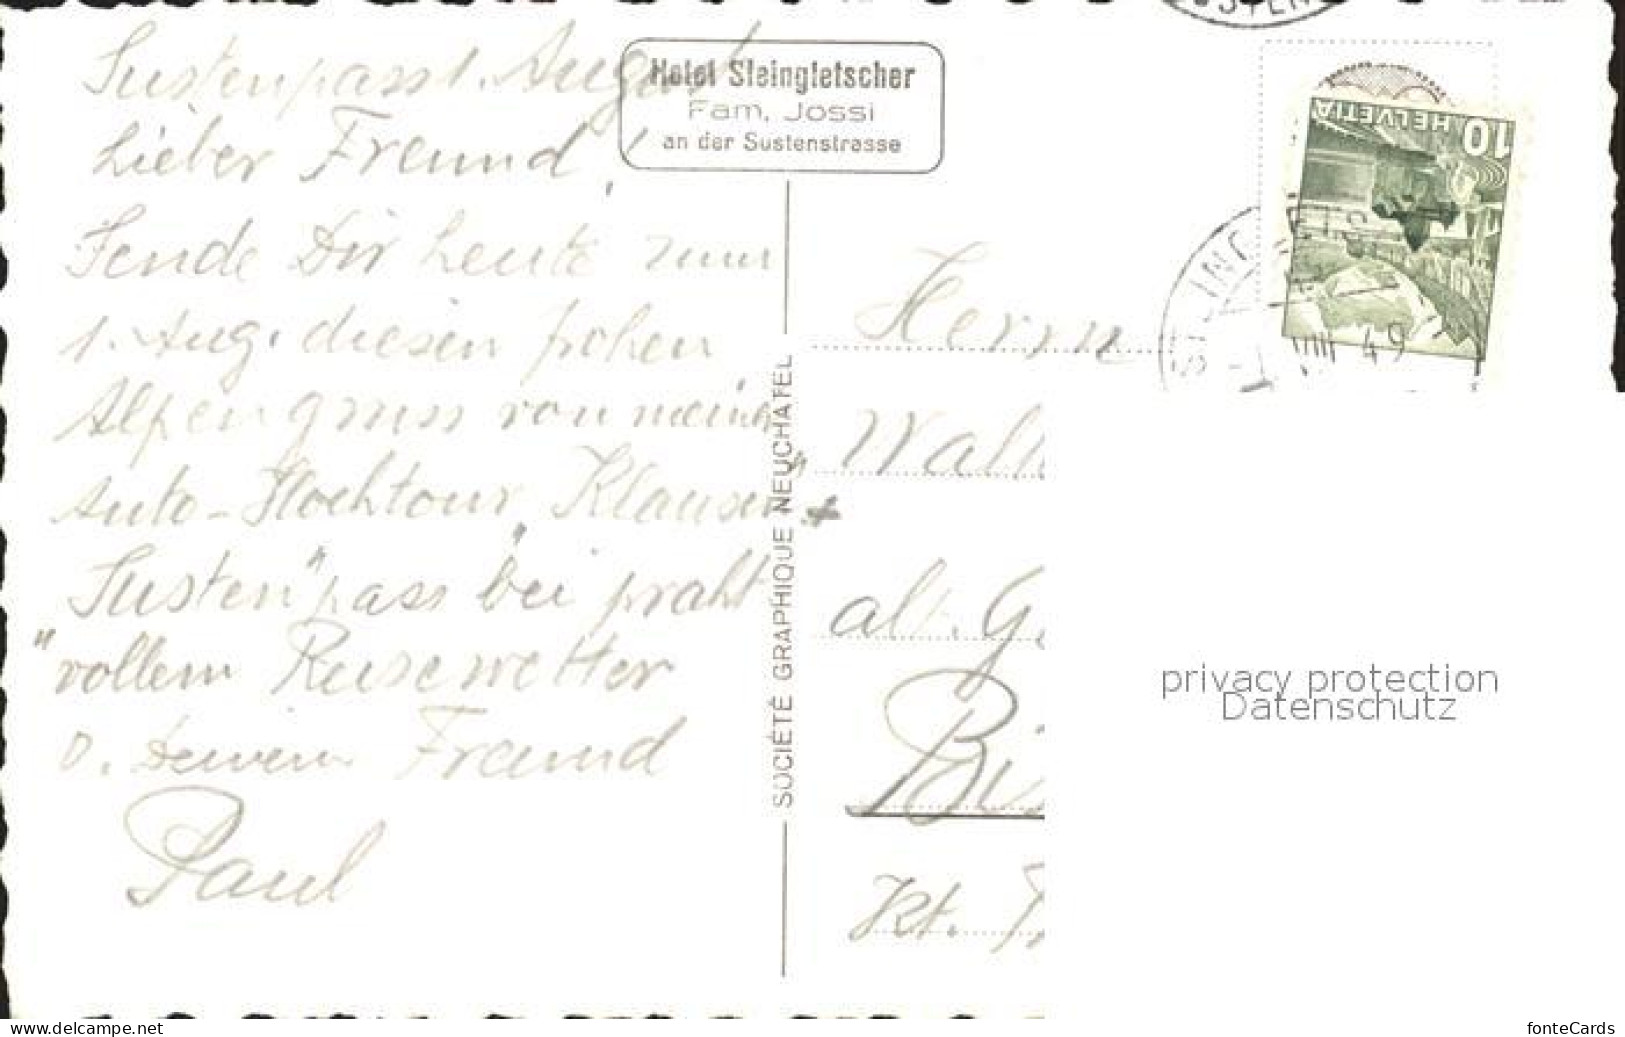 Sustenpass 1. August
Lieber Freund!
Sende Dir heute zum
1. Aug. diesen frohen
Alpengruss von meiner
Auto-Hochtour "Klausen" +
"Susten" pass bei praht
vollem Reisewetter
D. Deinem Freund
Paul
Hotel Steingletscher
Fam. Jossi
an der Sustenstrasse
SOCIÉTÉ GRAPHIQUE NEUCHATEL
HELVETIA 10
VIII 49
Herrn
alt. G
Bi
Kt.
privacy protection
Datenschutz
www.delcampe.net
fonteCards